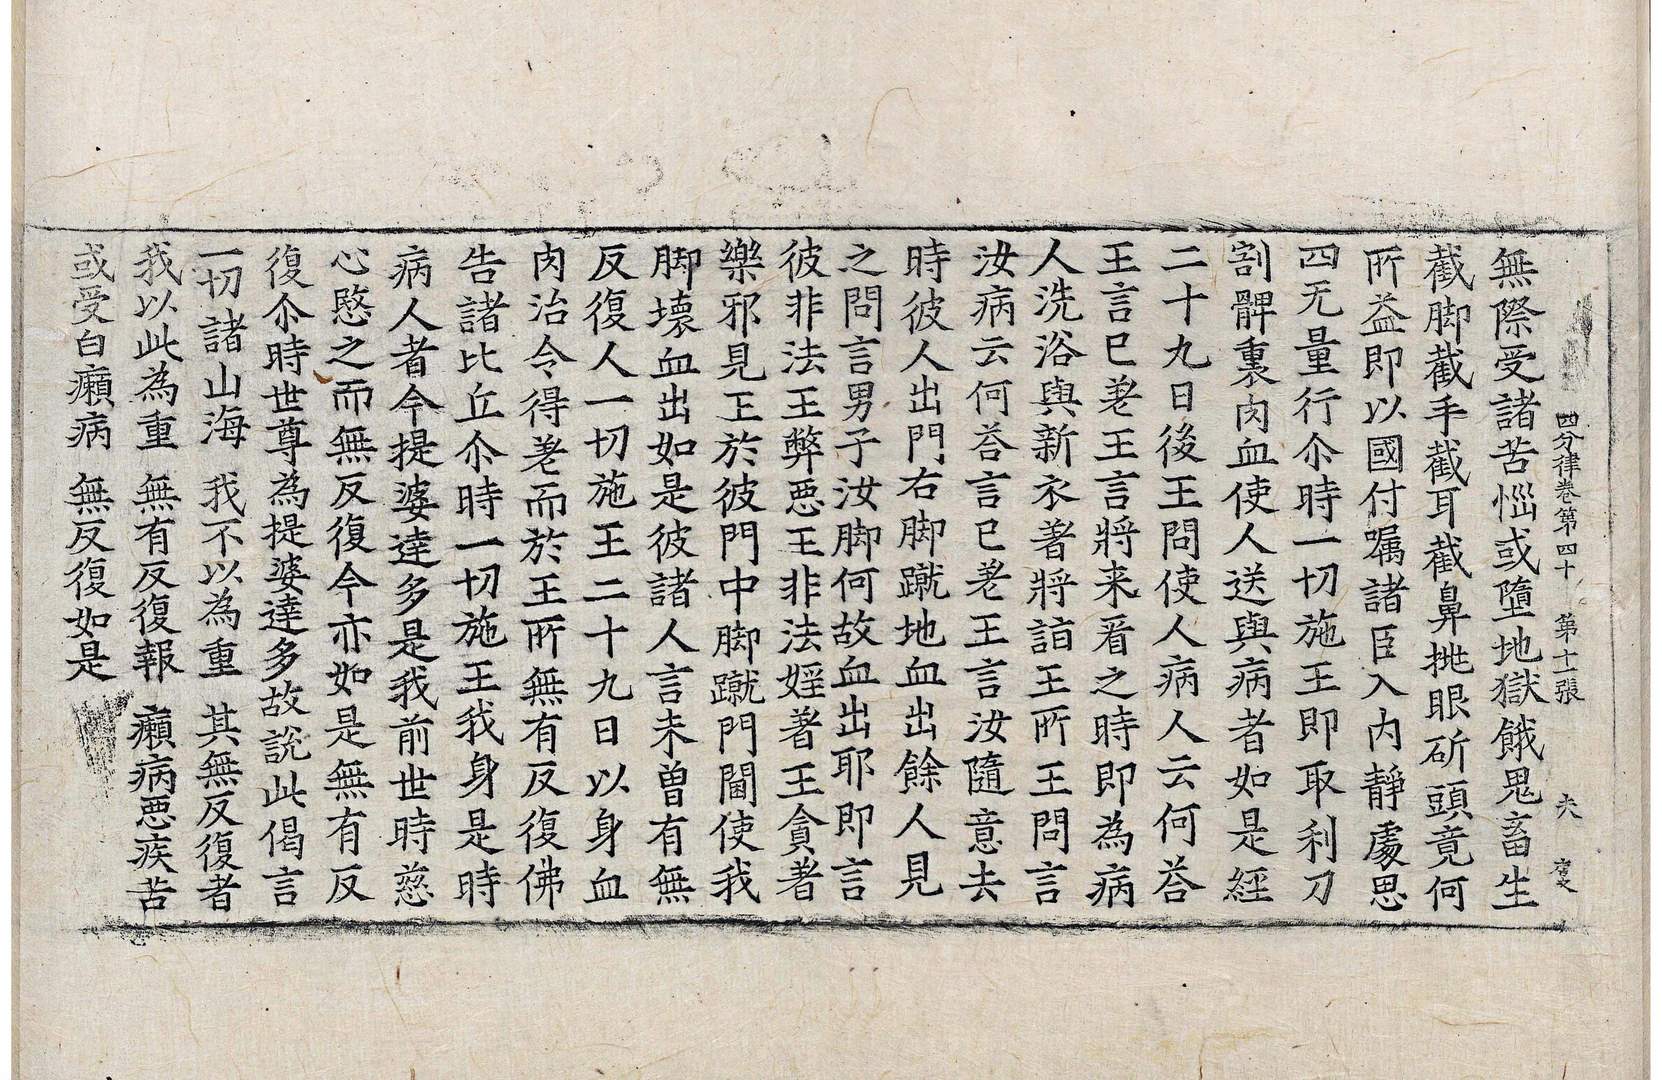 四分律卷第四十 第十一張 夫
無際受諸苦惱或墮地獄餓鬼畜生
截脚截手截耳截鼻挑眼斫頭竟何
所益即以國付囑諸臣入內靜處思
四无量行尒時一切施王即取利刀
割髀裏肉血使人送與病者如是經
二十九日後王問使人病人云何荅
王言已差王言將来看之時即為病
人洗浴與新衣著將詣王所王問言
汝病云何荅言已差王言汝隨意去
時彼人出門右脚蹴地血出餘人見
之問言男子汝脚何故血出耶即言
彼非法王弊惡王非法婬著王貪著
樂邪見王於彼門中脚蹴門閫使我
脚壞血出如是彼諸人言未曾有無
反復人一切施王二十九日以身血
肉治令得差而於王所無有反復佛
告諸比丘尒時一切施王我身是時
病人者今提婆達多是我前世時慈
心愍之而無反復今亦如是無有反
復尒時世尊為提婆達多故說此偈言
一切諸山海 我不以為重 其無反復者
我以此為重 無有反復報 癩病惡疾苦
或受白癩病 無反復如是